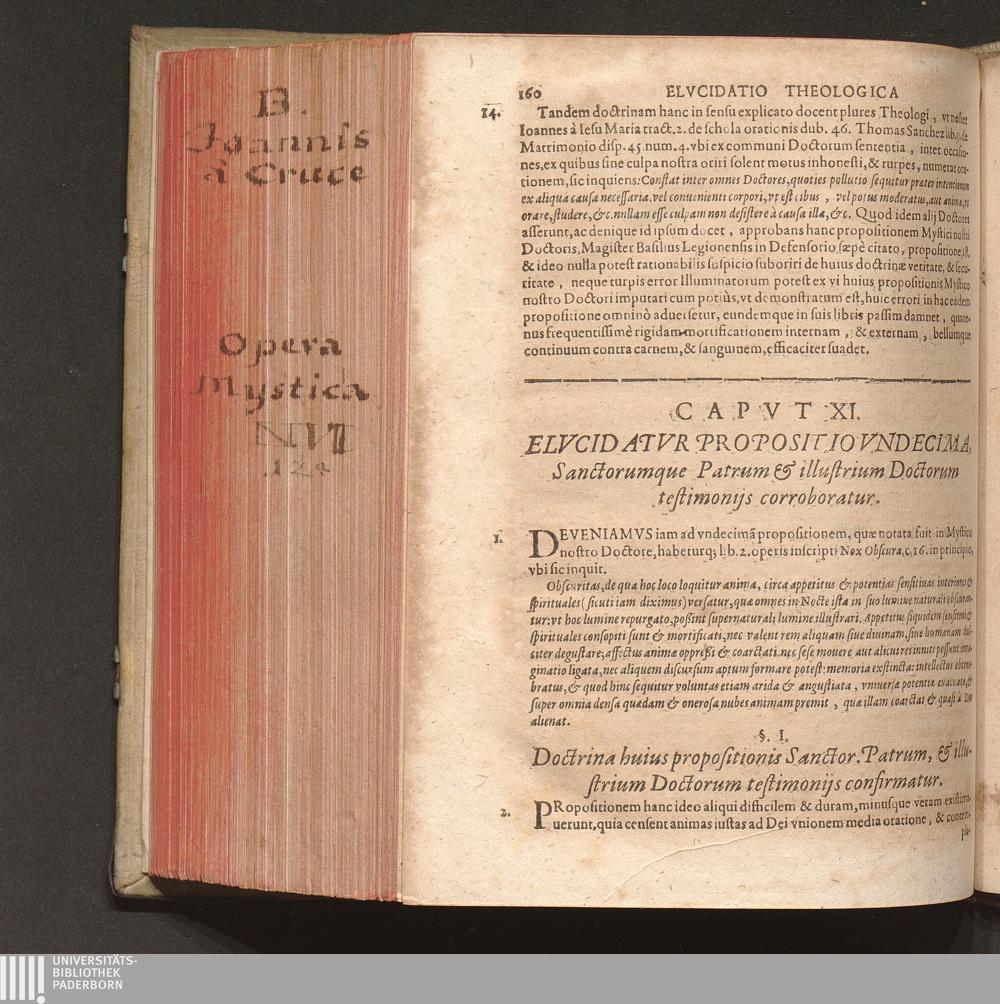 B.
Joannis
à Cruce
Opera
Mystica
NVI
124
160 ELVCIDATIO THEOLOGICA
14. Tandem doctrinam hanc in sensu explicato docent plures Theologi, vt noster
Ioannes à Iesu Maria tract. 2. de schola orationis dub. 46. Thomas Sanchez lib. 9. de
Matrimonio disp. 45. num. 4. vbi ex communi Doctorum sententia, inter occasio-
nes, ex quibus sine culpa nostra oriri solent motus inhonesti, & turpes, numerat ora-
tionem, sic inquiens: Constat inter omnes Doctores, quoties pollutio sequitur præter intentionem
ex aliqua causa necessaria, vel conuenienti corpori, vt est cibus, vel potus moderatus, aut animæ, vt
orare, studere, &c. nullam esse culpam non desistere à causa illa, &c. Quod idem alij Doctores
asserunt, ac denique id ipsum docet, approbans hanc propositionem Mystici nostri
Doctoris, Magister Basilius Legionensis in Defensorio sæpè citato, propositione 18.
& ideo nulla potest rationabilis suspicio suboriri de huius doctrinæ veritate, & secu-
ritate, neque turpis error Illuminatorum potest ex vi huius propositionis Mystico
nostro Doctori imputari cum potiùs, vt demonstratum est, huic errori in hac eadem
propositione omninò aduersetur, eundemque in suis libris passim damnet, quate-
nus frequentissimè rigidam mortificationem internam, & externam, bellumque
continuum contra carnem, & sanguinem, efficaciter suadet.
CAPVT XI.
ELVCIDATVR PROPOSITIO VNDECIMA,
Sanctorumque Patrum & illustrium Doctorum
testimonijs corroboratur.
1. DEVENIAMVS iam ad vndecimã propositionem, quæ notata fuit in Mystico
nostro Doctore, habeturq; lib. 2. operis inscripti Nox Obscura, c. 16. in principio,
vbi sic inquit.
Obscuritas, de qua hoc loco loquitur anima, circa appetitus & potentias sensitiuas interiores &
spirituales (sicuti iam diximus) versatur, quæ omnes in Nocte ista in suo lumine naturali obscuran-
tur: vt hoc lumine repurgato, possint supernaturali lumine illustrari. Appetitus siquidem sensitiui &
spirituales consopiti sunt & mortificati, nec valent rem aliquam siue diuinam, siue humanam dul-
citer degustare; affectus animæ oppressi & coarctati, nec sese mouere aut alicui rei inniti possunt: ima-
ginatio ligata, nec aliquem discursum aptum formare potest: memoria exstincta: intellectus obtene-
bratus, & quod hinc sequitur voluntas etiam arida & angustiata, vniuersæ potentiæ euacuatæ, &
super omnia densa quædam & onerosa nubes animam premit, quæ illam coarctat & quasi à Deo
alienat.
§. I.
Doctrina huius propositionis Sanctor. Patrum, & illu-
strium Doctorum testimonijs confirmatur.
2. PRopositionem hanc ideo aliqui difficilem & duram, minusque veram existima-
uerunt, quia censent animas iustas ad Dei vnionem media oratione, & contem-
pla-
UNIVERSITÄTS-
BIBLIOTHEK
PADERBORN